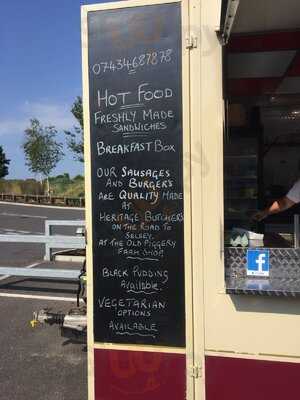 07434687878
HOT FOOD
FRESHLY MADE
SANDWICHES
BREAKFAST BOX
OUR SAUSAGES
AND BURGER'S
ARE QUALITY MADE
AT
HERITAGE BUTCHERS
ON THE ROAD TO
SELSEY.
AT THE OLD PIGGERY
FARM SHOP.
BLACK PUDDING
AVAILABLE.
VEGETARIAN
OPTIONS
AVAILABLE
f